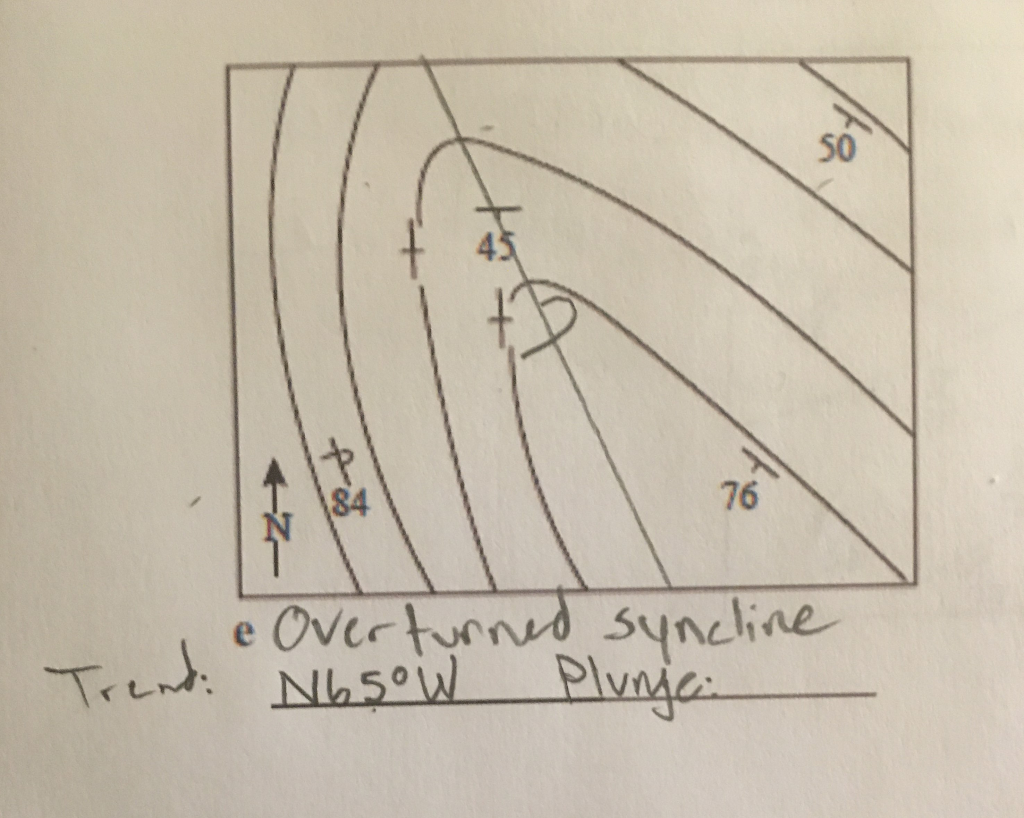 50
45
76
84
N
e Overturned syncline
Trend: N65°W Plunge: